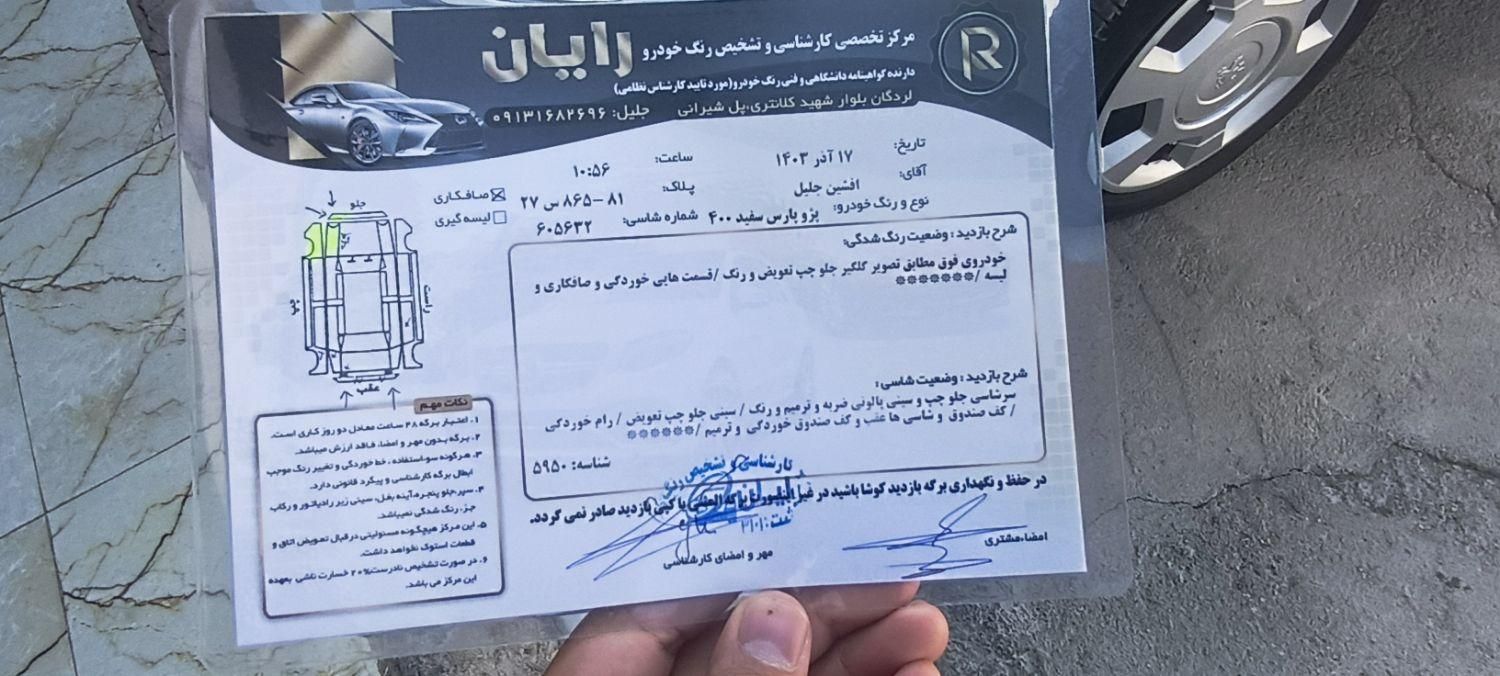 مرکز تخصصی کارشناسی و تشخیص رنگ خودرو رایان
دارنده گواهینامه دانشگاهی و فنی رنگ خودرو(مورد تایید کارشناس نظامی)
لردگان بلوار شهید کلانتری،پل شیرانی جلیل: ۰۹۱۳۱۶۸۲۶۹۶
R
تاریخ: ۱۷ آذر ۱۴۰۳ ساعت: ۱۰:۵۶
آقای: افشین جلیل پلاک: ۸۱-۸۶۵ س ۲۷
نوع و رنگ خودرو: پژو پارس سفید ۴۰۰ شماره شاسی: ۶۰۵۶۳۲
صافکاری
لیسه گیری
جلو
چپ
راست
عقب
شرح بازدید : وضعیت رنگ شدگی:
خودروی فوق مطابق تصویر گلگیر جلو چپ تعویض و رنگ /قسمت هایی خوردگی و صافکاری و
لیسه /*******
شرح بازدید : وضعیت شاسی :
سرشاسی جلو چپ و سینی پالونی ضربه و ترمیم و رنگ / سینی جلو چپ تعویض / رام خوردگی
/ کف صندوق و شاسی ها عقب و کف صندوق خوردگی و ترمیم /******
شناسه: ۵۹۵۰
نکات مهم
۱. اعتبار برگه ۴۸ ساعت معادل دو روز کاری است.
۲. برگه بدون مهر و امضا، فاقد ارزش میباشد.
۳. هرگونه سو،استفاده ، خط خوردگی و تغییر رنگ موجب
ابطال برگه کارشناسی و پیگرد قانونی دارد.
۴. سپر،جلو پنجره،آینه بغل، سینی زیر رادیاتور و رکاب
جزء رنگ شدگی نمیباشد.
۵. این مرکز هیچگونه مسئولیتی در قبال تعویض اتاق و
قطعات استوک نخواهد داشت.
۶. در صورت تشخیص نادرست ۲۰% خسارت ناشی بعهده
این مرکز می باشد.
در حفظ و نگهداری برگه بازدید کوشا باشید در غیر اینصورت برگه المثنی یا کپی بازدید صادر نمی گردد.
کارشناسی و تشخیص رنگ
رایان
ثبت: ۳۱۰۱
مهر و امضای کارشناسی
امضاء،مشتری